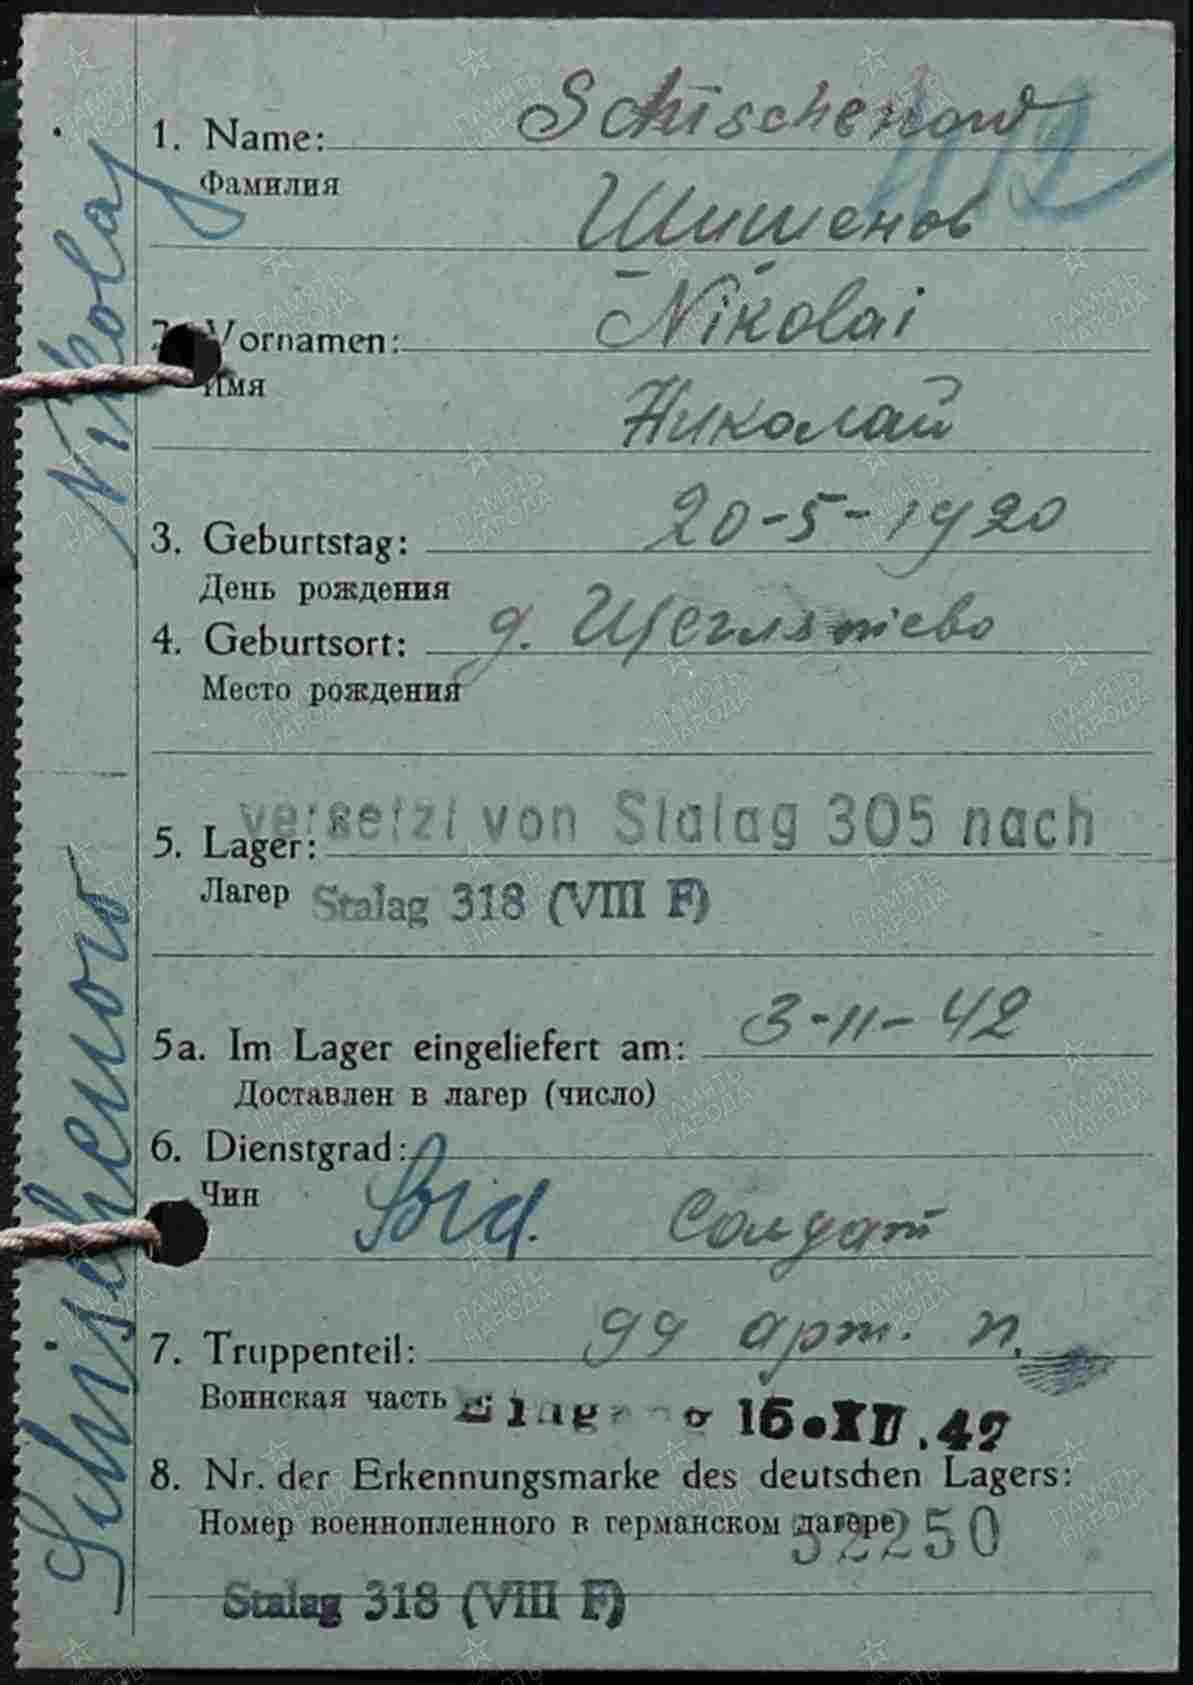 1. Name: Schischenow
412
Фамилия
Шишенов
2. Vornamen: Nikolai
Имя
Николай
3. Geburtstag: 20-5-1920
День рождения
4. Geburtsort: д.
Место рождения
versetzt von Stalag 305 nach
5. Lager:
Лагер Stalag 318 (VIII F)
5a. Im Lager eingeliefert am: 3-11-42
Доставлен в лагер (число)
6. Dienstgrad:
Чин Sold. Солдат
7. Truppenteil: 99 арт. п.
Воинская часть
Eingang 15.XII.42
8. Nr. der Erkennungsmarke des deutschen Lagers:
Номер военнопленного в германском лагере
52250
Stalag 318 (VIII F)
Schischenow Nikolaj
ПАМЯТЬ НАРОДА